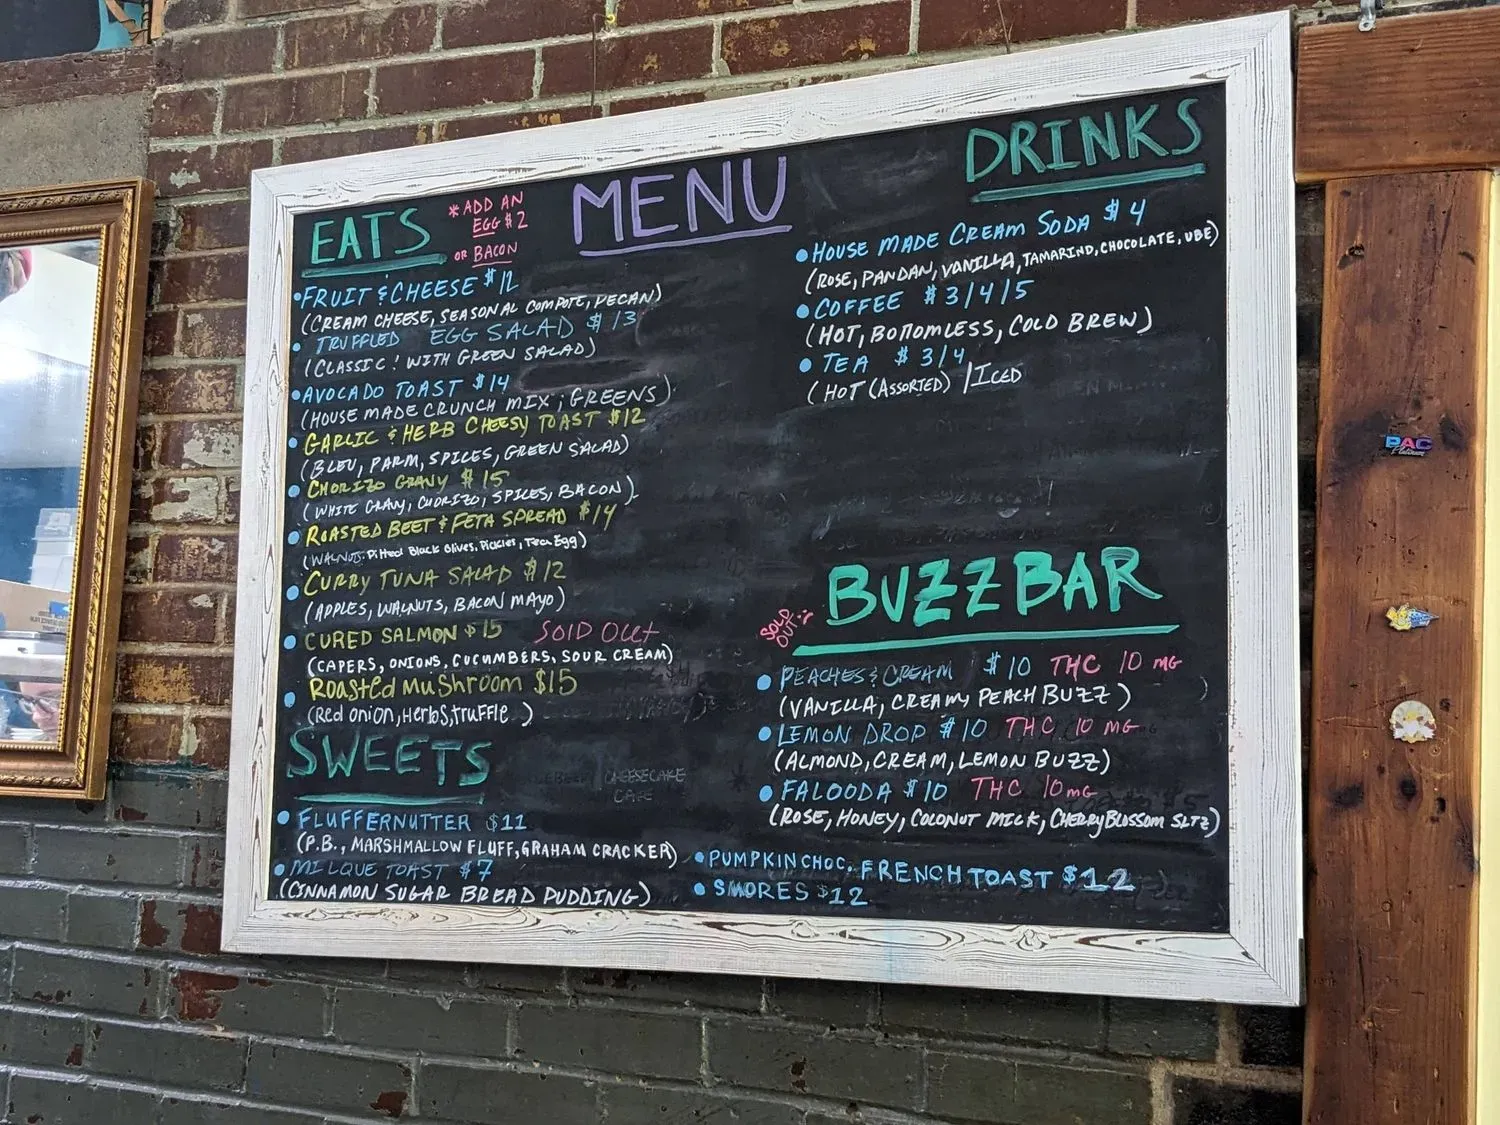 MENU
EATS
* ADD AN
EGG $2
OR BACON
•FRUIT & CHEESE $12
(CREAM CHEESE, SEASONAL COMPOTE, PECAN)
• TRUFFLED EGG SALAD $13
(CLASSIC! WITH GREEN SALAD)
•AVOCADO TOAST $14
(HOUSE MADE CRUNCH MIX, GREENS)
• GARLIC & HERB CHEESY TOAST $12
(BLEU, PARM, SPICES, GREEN SALAD)
• CHORIZO GRAVY $15
(WHITE GRAVY, CHORIZO, SPICES, BACON)
• ROASTED BEET & FETA SPREAD $14
(WALNUTS, Pitted Black Olives, Pickles, Tea Egg)
• CURRY TUNA SALAD $12
(APPLES, WALNUTS, BACON MAYO)
• CURED SALMON $15 SOlD Out
(CAPERS, ONIONS, CUCUMBERS, SOUR CREAM)
• Roasted MuShroom $15
(Red Onion, Herbs, truffle)
SWEETS
CHEESECAKE
CAFE
• FLUFFERNUTTER $11
(P.B., MARSHMALLOW FLUFF, GRAHAM CRACKER)
• MILQUE TOAST $7
(CINNAMON SUGAR BREAD PUDDING)
• PUMPKIN CHOC. FRENCH TOAST $12
• SMORES $12
DRINKS
• HOUSE MADE CREAM SODA $4
(ROSE, PANDAN, VANILLA, TAMARIND, CHOCOLATE, UBE)
• COFFEE $3/4/5
(HOT, BOTTOMLESS, COLD BREW)
• TEA $3/4
(HOT (ASSORTED) / ICED
BUZZBAR
SOLD
OUT :(
• PEACHES & CREAM $10 THC 10 MG
(VANILLA, CREAMY PEACH BUZZ)
• LEMON DROP $10 THC 10 MG
(ALMOND, CREAM, LEMON BUZZ)
• FALOODA $10 THC 10MG
(ROSE, HONEY, COCONUT MILK, CHERRY BLOSSOM SLTZ)
PAC